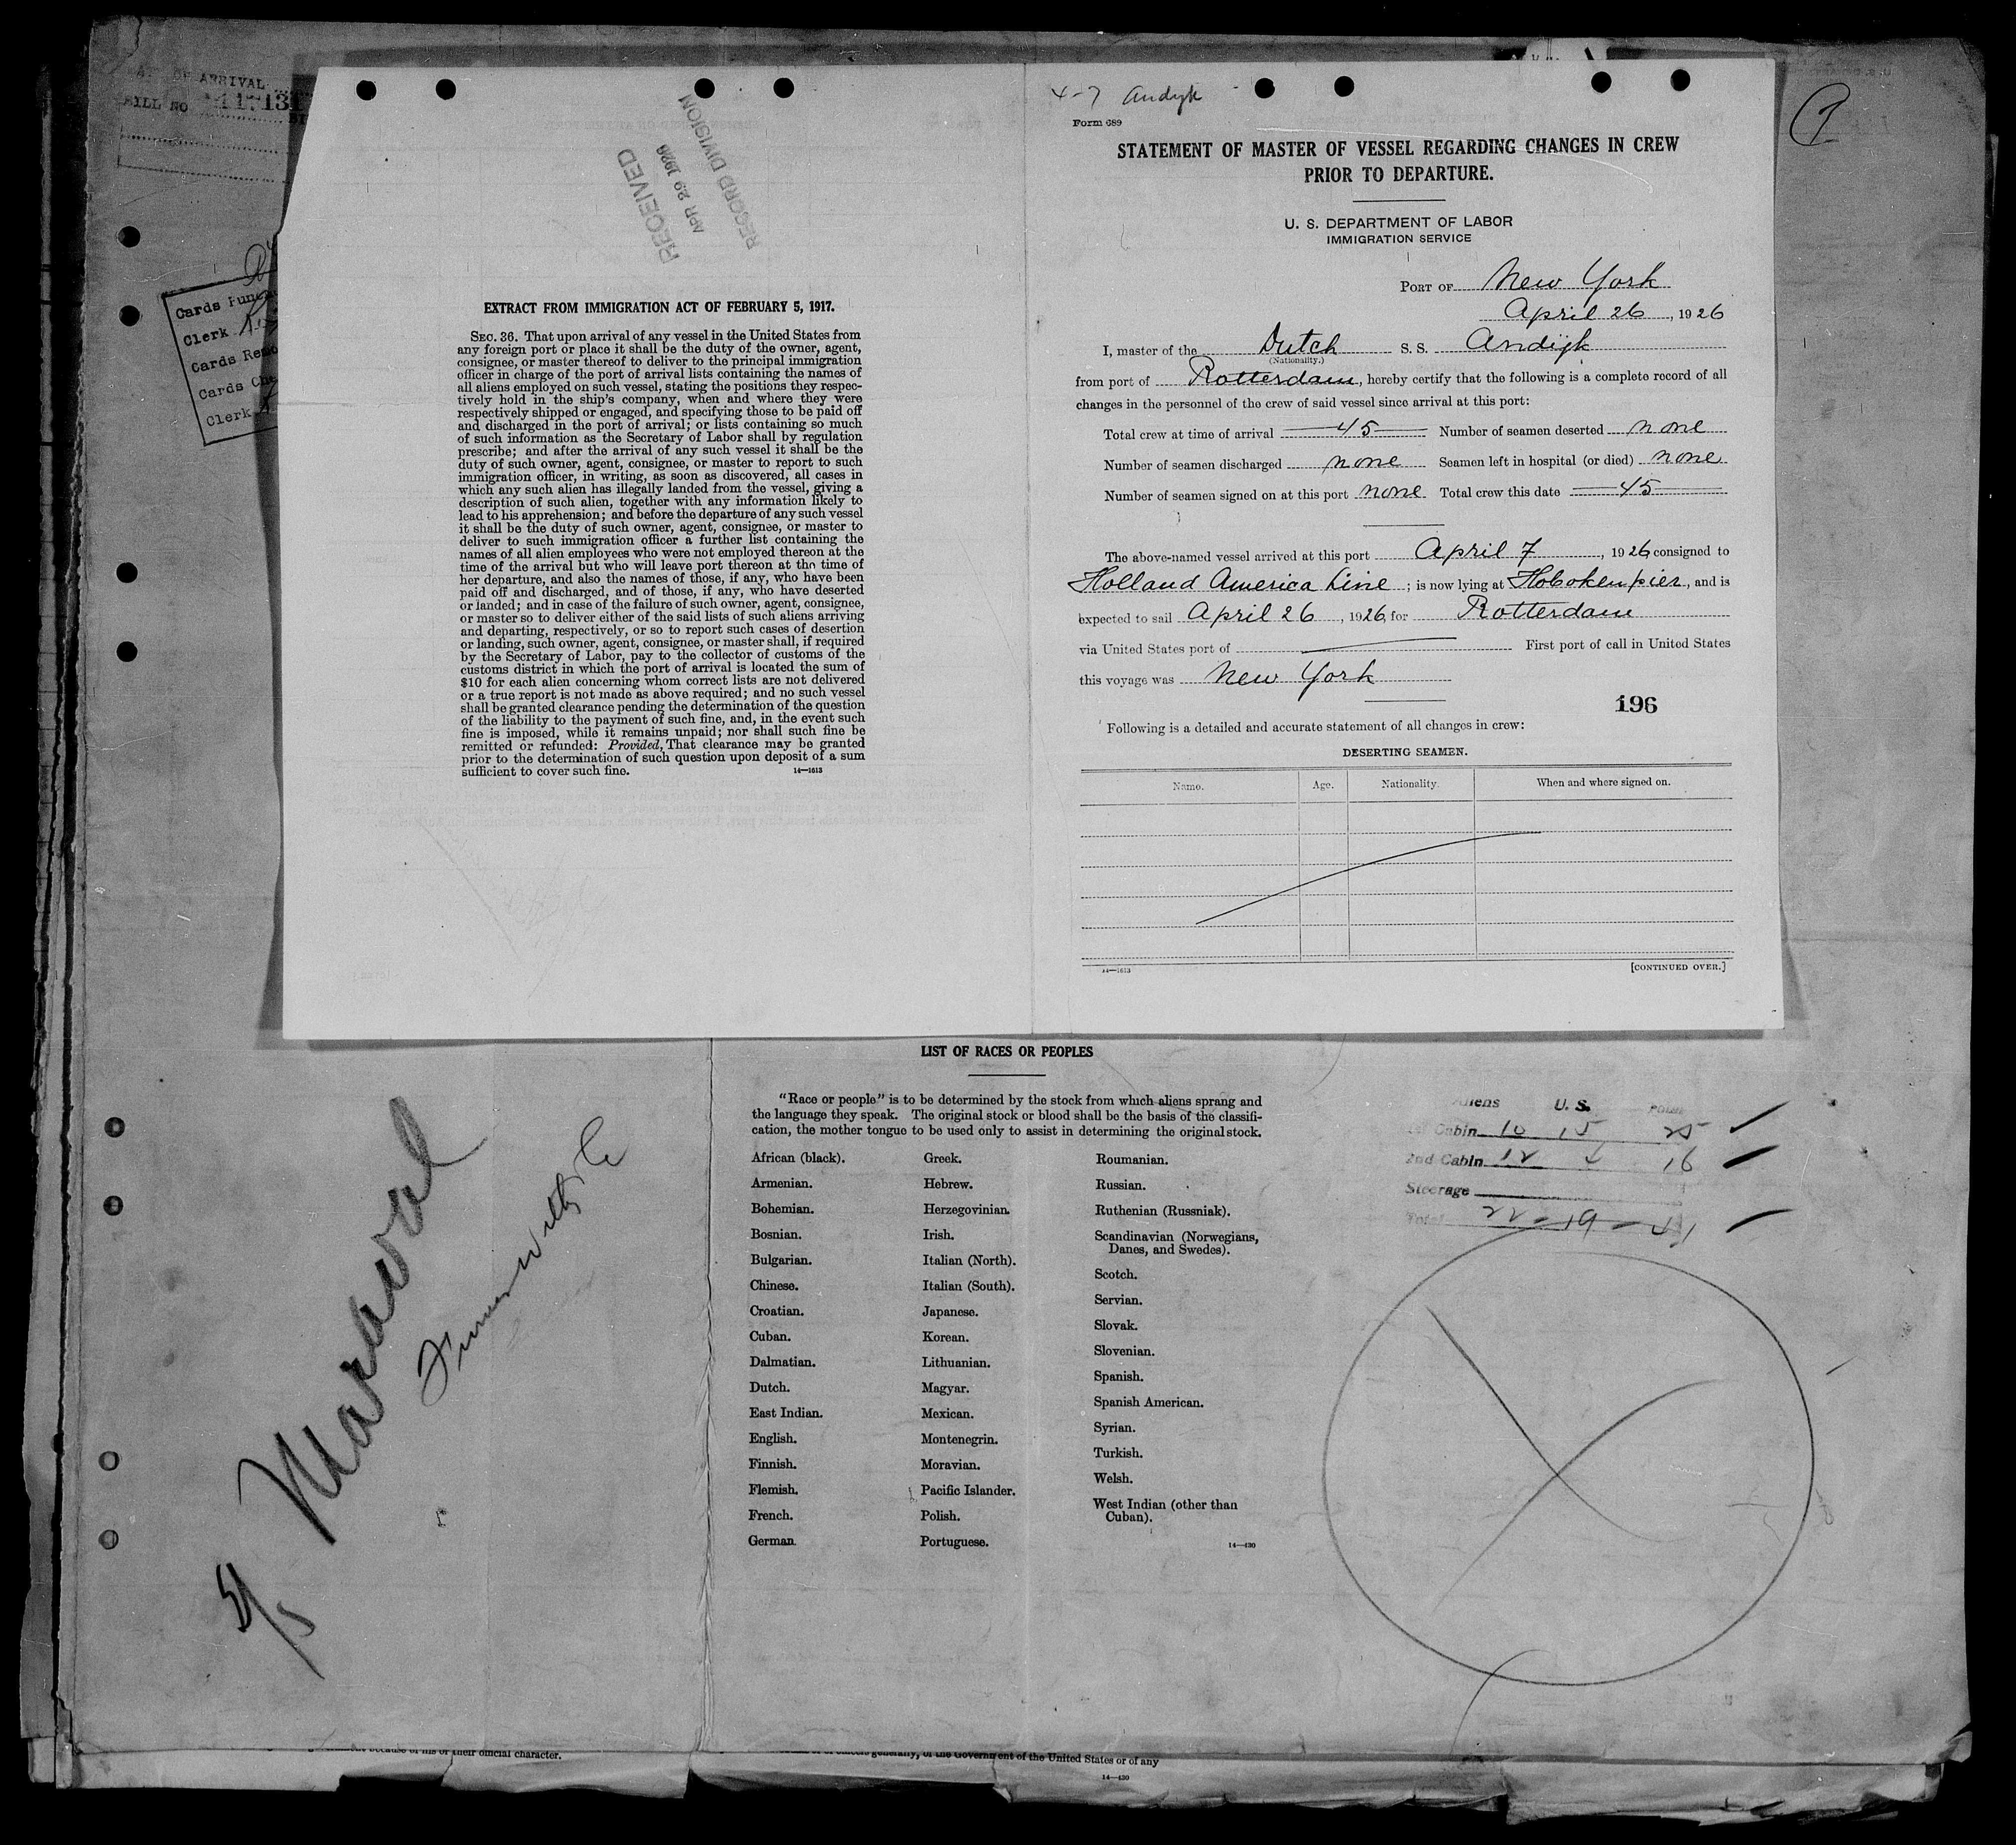 DATE OF ARRIVAL
Cards Punc
Clerk
Cards Remo
Cards Che
Clerk
RECEIVED
APR 29 1926
RECORD DIVISION
EXTRACT FROM IMMIGRATION ACT OF FEBRUARY 5, 1917.
SEC. 36. That upon arrival of any vessel in the United States from
any foreign port or place it shall be the duty of the owner, agent,
consignee, or master thereof to deliver to the principal immigration
officer in charge of the port of arrival lists containing the names of
all aliens employed on such vessel, stating the positions they respec-
tively hold in the ship's company, when and where they were
respectively shipped or engaged, and specifying those to be paid off
and discharged in the port of arrival; or lists containing so much
of such information as the Secretary of Labor shall by regulation
prescribe; and after the arrival of any such vessel it shall be the
duty of such owner, agent, consignee, or master to report to such
immigration officer, in writing, as soon as discovered, all cases in
which any such alien has illegally landed from the vessel, giving a
description of such alien, together with any information likely to
lead to his apprehension; and before the departure of any such vessel
it shall be the duty of such owner, agent, consignee, or master to
deliver to such immigration officer a further list containing the
names of all alien employees who were not employed thereon at the
time of the arrival but who will leave port thereon at the time of
her departure, and also the names of those, if any, who have been
paid off and discharged, and of those, if any, who have deserted
or landed; and in case of the failure of such owner, agent, consignee,
or master so to deliver either of the said lists of such aliens arriving
and departing, respectively, or so to report such cases of desertion
or landing, such owner, agent, consignee, or master shall, if required
by the Secretary of Labor, pay to the collector of customs of the
customs district in which the port of arrival is located the sum of
$10 for each alien concerning whom correct lists are not delivered
or a true report is not made as above required; and no such vessel
shall be granted clearance pending the determination of the question
of the liability to the payment of such fine, and, in the event such
fine is imposed, while it remains unpaid; nor shall such fine be
remitted or refunded: Provided, That clearance may be granted
prior to the determination of such question upon deposit of a sum
sufficient to cover such fine. 14—1613
4-7 Andyk
Form 689
STATEMENT OF MASTER OF VESSEL REGARDING CHANGES IN CREW
PRIOR TO DEPARTURE.
U. S. DEPARTMENT OF LABOR
IMMIGRATION SERVICE
PORT OF New York
April 26, 1926
I, master of the Dutch S. S. Andijk
(Nationality.)
from port of Rotterdam, hereby certify that the following is a complete record of all
changes in the personnel of the crew of said vessel since arrival at this port:
Total crew at time of arrival 45 Number of seamen deserted none
Number of seamen discharged none Seamen left in hospital (or died) none
Number of seamen signed on at this port none Total crew this date 45
The above-named vessel arrived at this port April 7, 1926 consigned to
Holland America Line; is now lying at Hoboken pier, and is
expected to sail April 26, 1926, for Rotterdam
via United States port of First port of call in United States
this voyage was New York
196
Following is a detailed and accurate statement of all changes in crew:
DESERTING SEAMEN.
Name. Age. Nationality. When and where signed on.
14—1613 [CONTINUED OVER.]
S/S Maraval
LIST OF RACES OR PEOPLES
"Race or people" is to be determined by the stock from which aliens sprang and
the language they speak. The original stock or blood shall be the basis of the classifi-
cation, the mother tongue to be used only to assist in determining the original stock.
African (black).
Armenian.
Bohemian.
Bosnian.
Bulgarian.
Chinese.
Croatian.
Cuban.
Dalmatian.
Dutch.
East Indian.
English.
Finnish.
Flemish.
French.
German.
Greek.
Hebrew.
Herzegovinian.
Irish.
Italian (North).
Italian (South).
Japanese.
Korean.
Lithuanian.
Magyar.
Mexican.
Montenegrin.
Moravian.
Pacific Islander.
Polish.
Portuguese.
Roumanian.
Russian.
Ruthenian (Russniak).
Scandinavian (Norwegians,
Danes, and Swedes).
Scotch.
Servian.
Slovak.
Slovenian.
Spanish.
Spanish American.
Syrian.
Turkish.
Welsh.
West Indian (other than
Cuban).
14—430
Aliens U. S. Total
Cabin 10 15 25
2nd Cabin 12 4 16
Steerage
Total 22 - 19 - 41
because of his or their official character.
generally, of the Government of the United States or of any
14—430